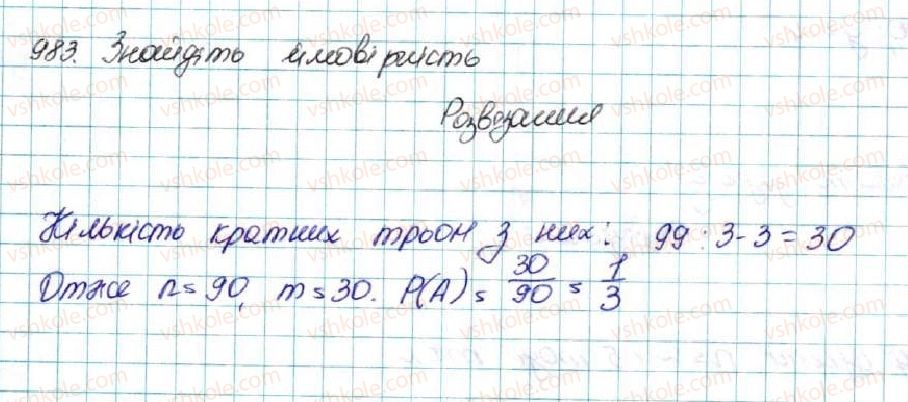 983. Знайдіть ймовірність
Розвозання
Кількість кратних трьом з них: 99 : 3 - 3 = 30
Отже n = 90, m = 30. P(A) = 30/90 = 1/3